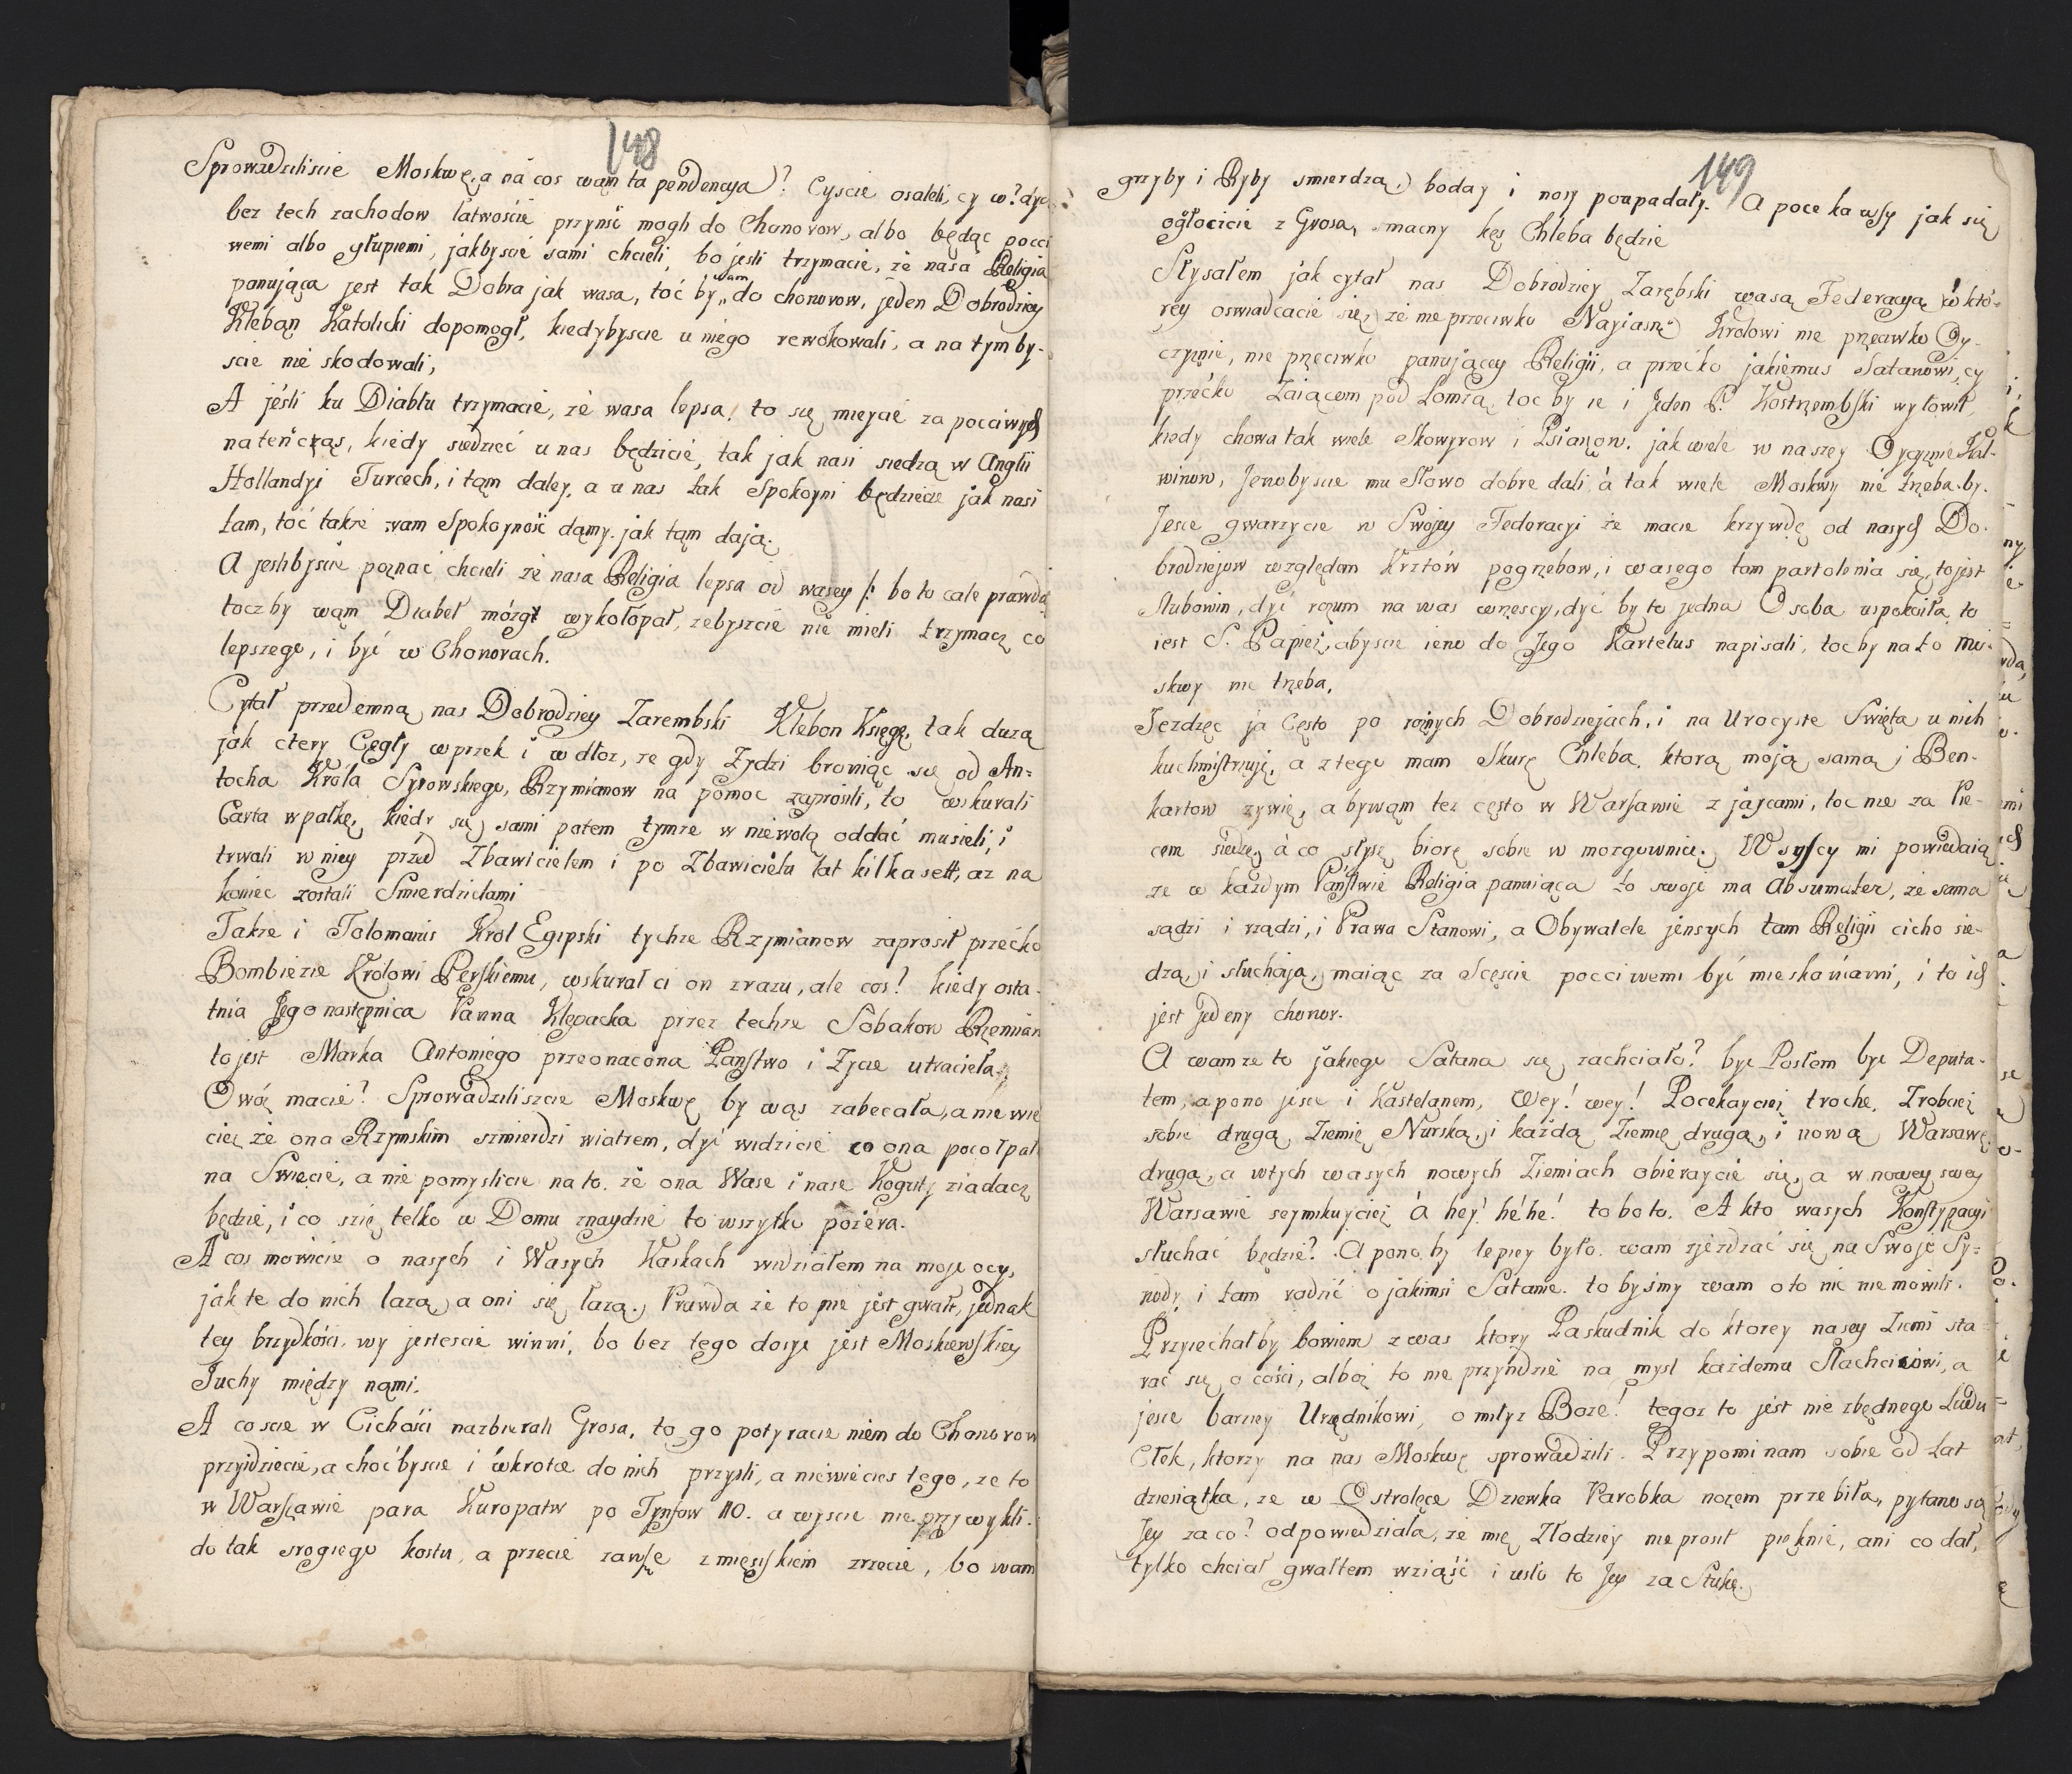 148
Sprowadziliscie Moskwę, a na cos wąm ta pendencya? Cyscie osaleli, cy w?
bez tech zachodow łatwoście przynść mogli do Chonorow, albo będąc pocci
wemi albo głupiemi, jakbyscie sami chcieli, bo jesli trzymacie, że nasa Religia
panująca jest tak Dobra jak wasa, toć by wam do chonorow, jeden Dobrodziey
Kleban Katolicki dopomogł, kiedybyscie u niego rewokowali, a na tym by-
scie nie skodowali,
A jésli ku Diabłu trzymacie, że wasa lepsa, to się mieycie za pocciwych
natenczas, kiedy siedzieć u nas będzicie, tak jak nasi siedzą w Anglii
Hollandyi Turcech, i tąm daley, a u nas tak Spokoyni będziecie jak nasi
tam, toć takze wam Spokoyność dąmy. jak tąm dają.
A jeslibyscie poznać chcieli że nasa Religia lepsa od wasey /: bo to cale prawda
toczby wąm Diabeł mózgi wykołopał, zebyszcie nie mieli trzymać co
lepszego, i być w Chonorach.
Cytał przedemną nas Dobrodziey Zarembski Klebon Księgę, tak duzą
jak ctery Cegły wprzek i wdłoz, ze gdy Zydzi broniąc się od An-
tocha Króla Syrowskiego, Rzymianow na pomoc zaprosili, to wskurali
Carta w pałkę, kiedy się sami potem tymze w niewolą oddać musieli, i
trwali w niey przed Zbawicielem i po Zbawicielu lat kilkaset, az na
koniec zostali Smierdzielami
Takze i Tolomanis Krol Egipski tychze Rzymianow zaprosił przećko
Bombizie Królowi Perskiemu, wskurał ci on zrazu, ale cos? kiedy osta-
tnia Jego następnica Panna Klepacka przez techze Sobakow Rzemian
to jest Marka Antoniego przeonacona Państwo i Zycie utracieła.
Owóz macie? Sprowadziliszcie Moskwę by wąs zabecała, a nie wie
cież że ona Rzymskim szmierdzi wiatrem, dyć widzicie co ona
na Swiecie, a nie pomyslicie na to. że ona Wase i nase Koguty ziadać
będzie, i co szię telko w Domu znaydzie to wszytko pożera.
A cos mowicie o nasych i Wasych Kaskach widziałem na moje ocy,
jak te do nich łazą a oni się łazą. Prawda że to nie jest gwałt, jednak
tey brzydkości. wy jestescie winni, bo bez tego dosyć jest Moskiewskiey
Juchy między nąmi.
A coscie w Cichości nazbierali Grosa, to go potyracie nim do Chonorow
przyidziecie, a choćbyscie i wkrotce do nich przysli, a niewiecies tego, ze to
w Warszawie para Kuropatw po Tynfow 110. a wyscie nie przywykli.
do tak srogiego kostu, a przecie zawse z mięsiskiem zrzecie, bo wam
149
grzyby i Ryby smierdzą. boday i nosy poupadały. A pocekawsy jak się
ogłocicie z Grosa, smacny kęs Chleba będzie
Słysałem jak cytał nas Dobrodziey Zarębski wasą Federacyą w któ-
rey oswiadcacie się, że nie przeciwko Nayiasn: Krolowi nie przeciwko Oy-
czyznie, nie przeciwko panującey Religii, a przećko jakiemus Satanowi, cy
przećko Zaiącom pod Łomżą, toć by ie i Jeden P. Kostrzembski wyłowił,
kiedy chowa tak wiele Skowyrow i Psianow. jak wiele w naszey Oyczyznie Kal-
winow, Jenobyscie mu Słowo dobre dali, a tak wiele Moskwy nie trzeba. by.
Jesce gwarzycie w Swojey Federacyi że macie krzywdę od nasych Do-
brodziejow względem Krztów pogrzebow, i wasego tam partolenia się, to jest
Slubowin, dyć rozum na was wrzescy, dyć by to jedna Osoba uspokoiła, to
iest S. Papież, abyscie ieno do Jego Kartelus napisali, toc by na to Mo-
skwy nie trzeba,
Jezdzęc ja Cęsto po roznych Dobrodziejach, i na Urocyste Swięta u nich
kuchmistrzuję, a z tego mam Skurę Chleba, ktorą moją samą i Ben-
kartow zywię, a bywąm tez cęsto w Warsawie z jajcami, toc nie za Pie-
cem siedzę, a co słysę biorę sobie w mozgownicę. Wsyscy mi powiedaią
ze w każdym Państwie Religia panuiąca to swoje ma absumater, że sama
sądzi i rządzi, i Prawa Stanowi, a Obywatele jensych tam Religii cicho sie-
dzą, i słuchają, maiąc za Scęscie pocciwemi być mieskańcami, i to ich
jest jedeny chonor.
A wam ze to jakiego Satana się zachciało? być Posłem być Deputa-
tem, a pono jesce i Kastelanem, Wey! wey! Pocekayciez troche, Zrobciez
sobie drugą Ziemię Nurską, i każdą Ziemię drugą, i nową Warsawę
drugą, a wtych wasych nowych Ziemiach obieraycie się, a w nowey swey
Warsawie seymikuyciez á hey! hé hé! to bo to. A kto wasych Konstypacyi
słuchać będzie? A pono by lepiey było. wam zjezdzać się na Swoje Sy-
nody i tam radzić o jakimsi Satanie. to bysmy wam oto nic nie mowili.
Przyiechałby bowiem z was ktory Paskudnik do ktorey nasey Ziemi sta-
rać się o cości, alboz to nie przyndzie na mysl każdemu Slachcicowi, a
jesce barziey Urzędnikowi, o miłyz Boze! tegoz to jest nie zbędnego Ludu
Cłek, ktorzy na nas Moskwę sprowadzili. Przypominam sobie od Lat
dziesiątka, ze w Ostrolęce Dziewka Parobka nozem przebiła, pytano się
Jey za co? odpowiedziała, że mię Złodziey nie prosił pieknie, ani co dał,
tylko chciał gwałtem wziąść i usło to Jey za Stukę.